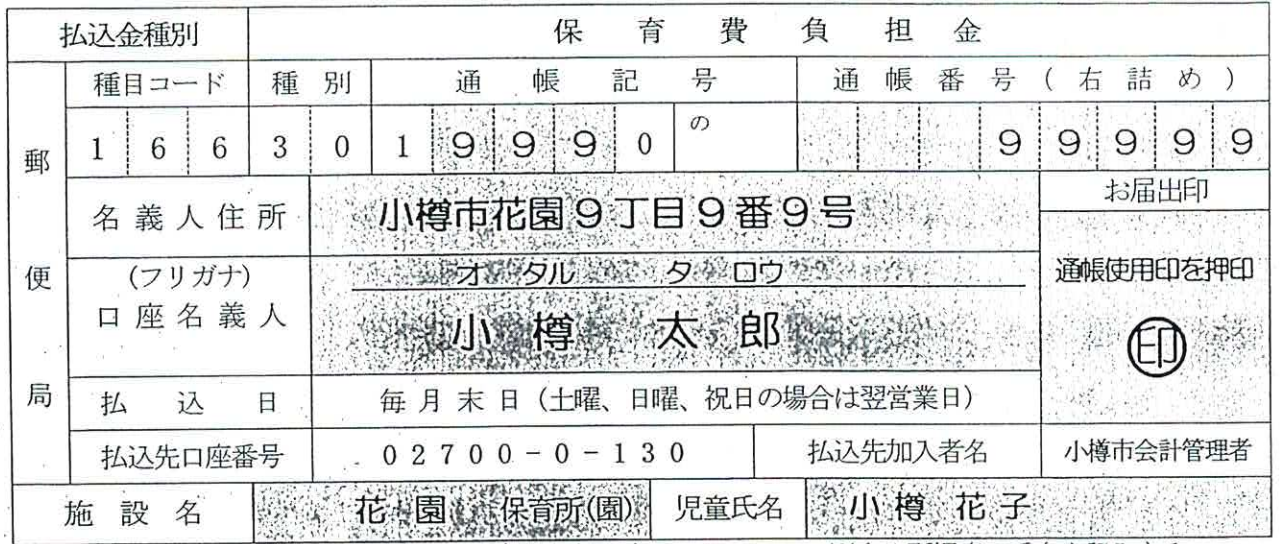 払込金種別 保育費負担金
種目コード 種別 通帳記号 通帳番号(右詰め)
166 30 19990 の 99999
郵便局
名義人住所 小樽市花園9丁目9番9号 お届出印
(フリガナ) オタル タロウ 通帳使用印を押印
口座名義人 小樽 太郎 印
払込日 毎月末日(土曜、日曜、祝日の場合は翌営業日)
払込先口座番号 02700-0-130 払込先加入者名 小樽市会計管理者
施設名 花園 保育所(園) 児童氏名 小樽花子